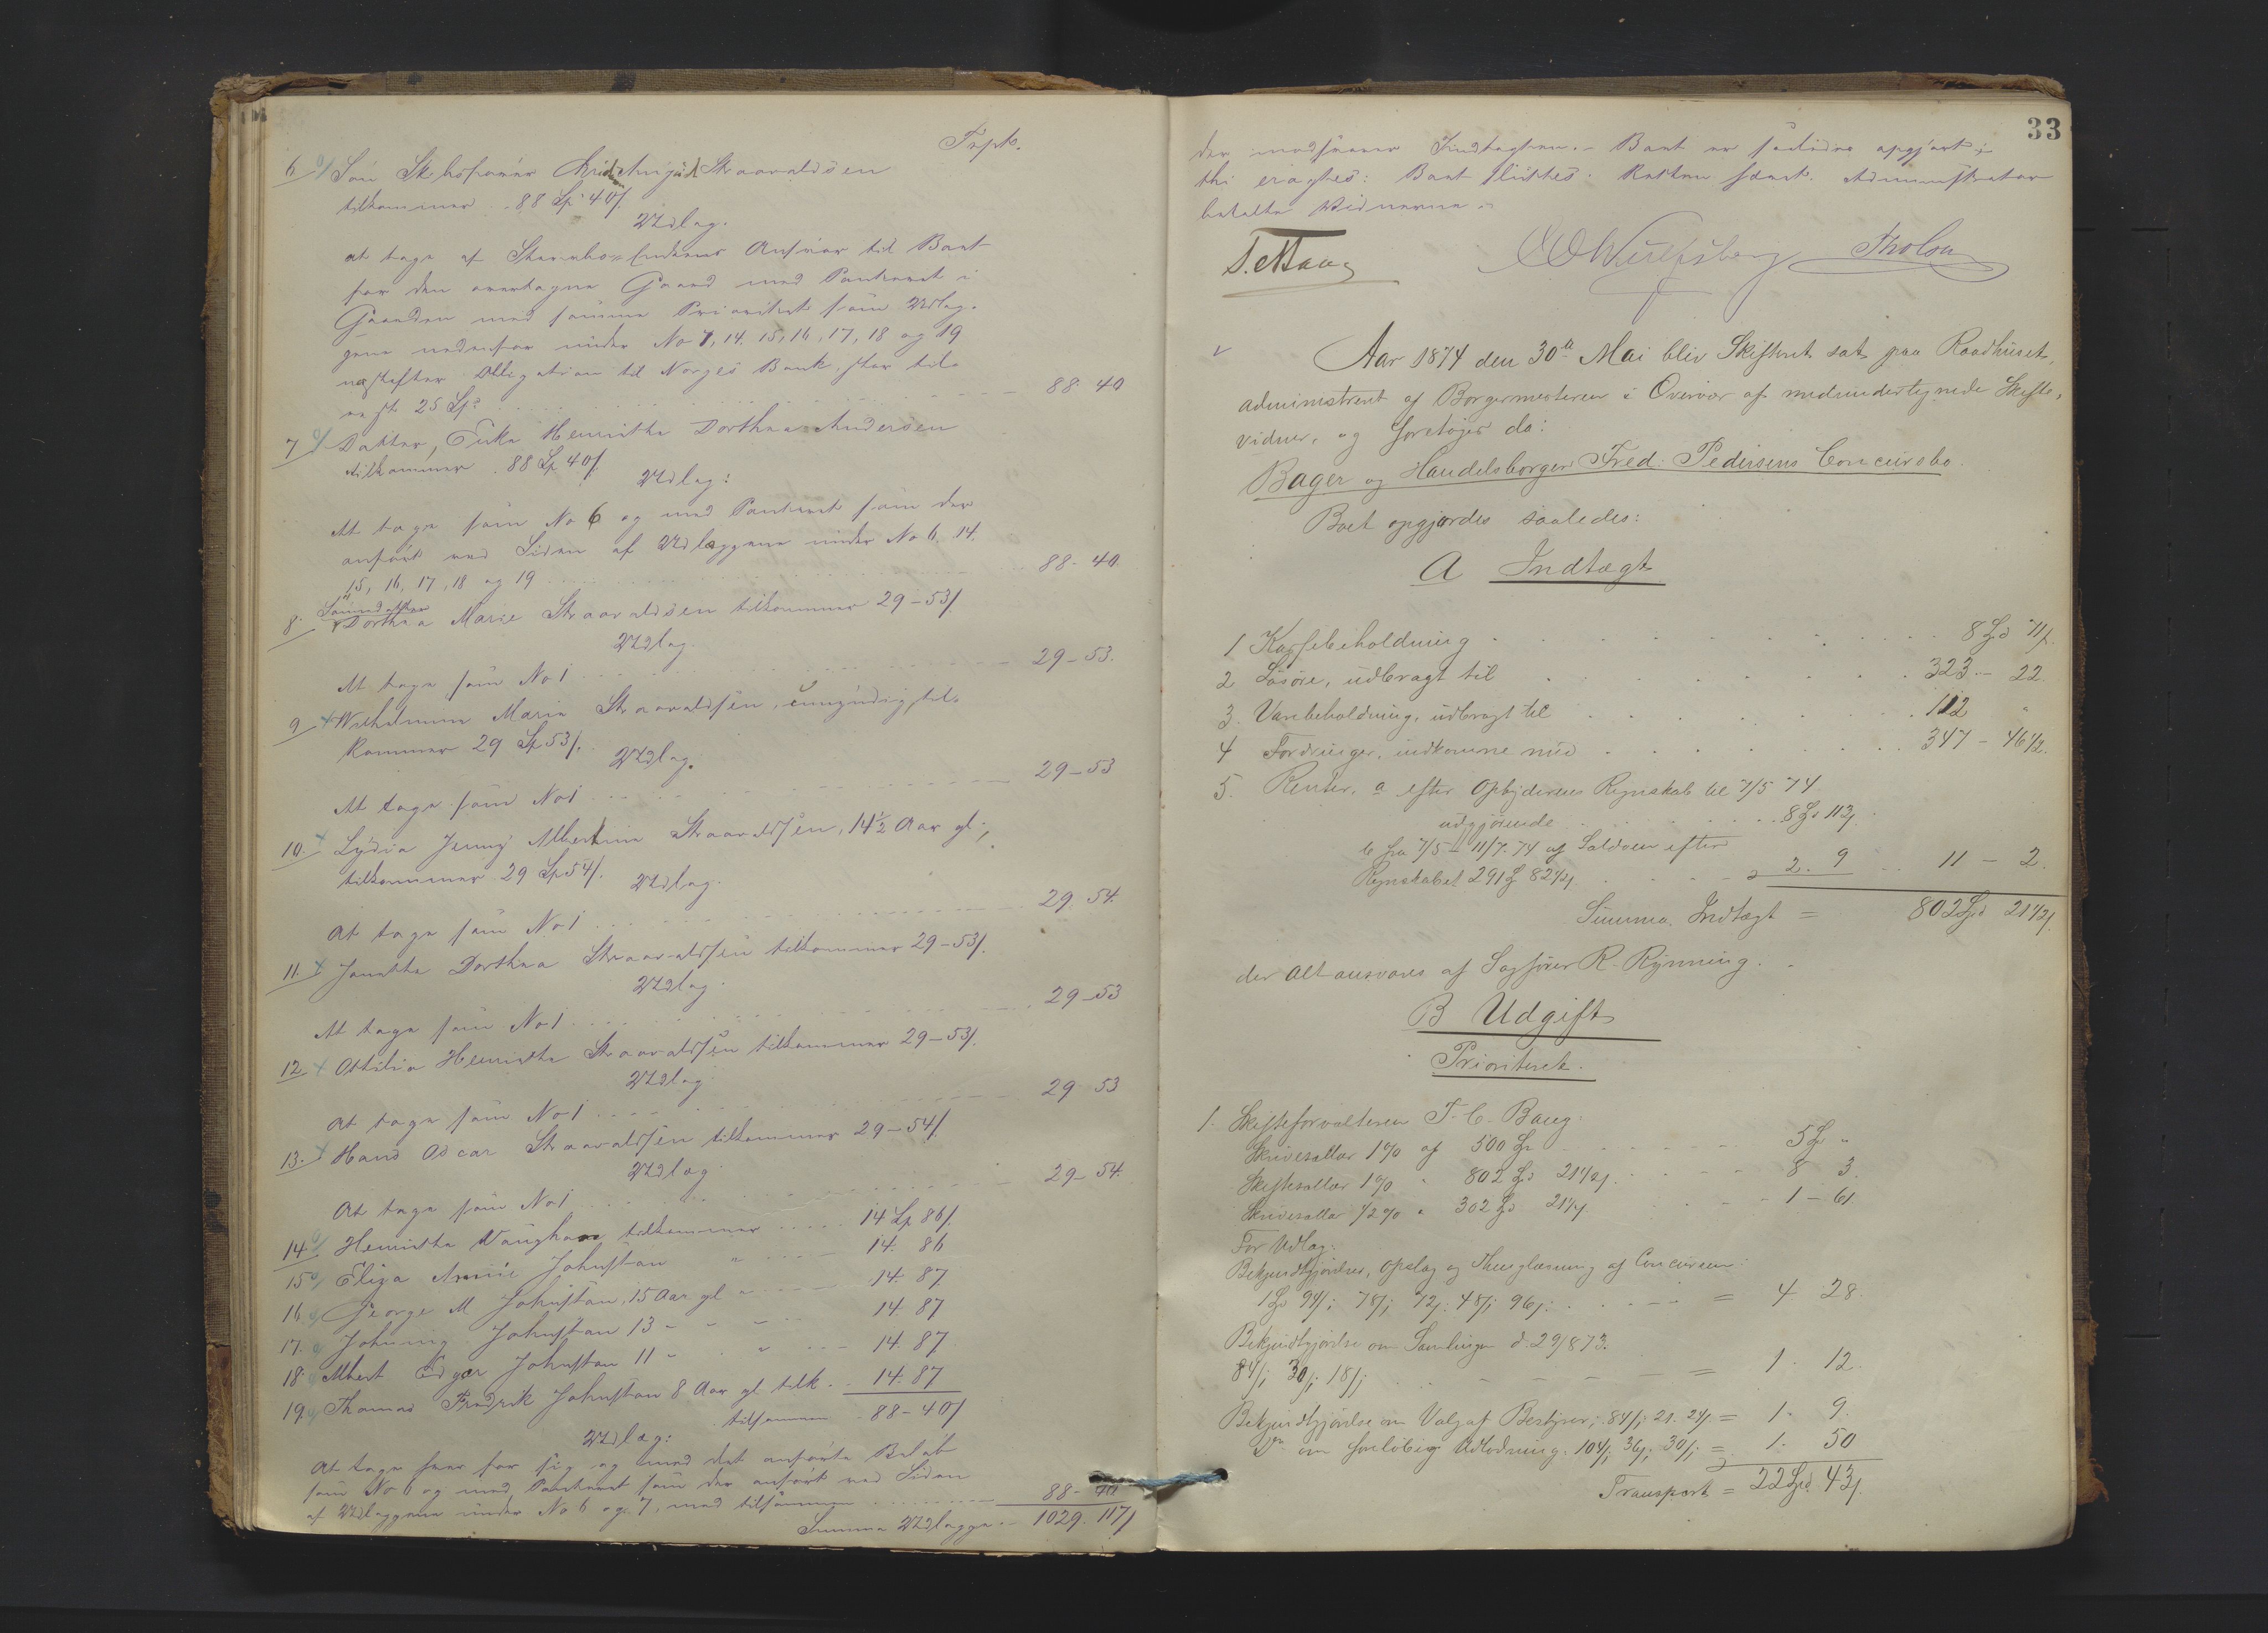 Trpt.
6 Søn Skibsfører Christ. August Straavaldsen
tilkommer 88 Sp 40 s.
Udlæg.
at tage af Stervbo-Enkens Ansvar til Boet
for den overtagne Gaard med Panteret i
Gaarden med samme Prioritet som Udlæg-
gene nedenfor under No 7, 14. 15, 16, 17, 18 og 19
næstefter Obligation til Norges Bank, stor til-
rest 25 Sp. 88. 40
7 Datter, Enke Henriette Dorthea Andersen
tilkommer 88 Sp 40 s.
Udlæg:
At tage som No 6 og med Panteret som der
anført ved Siden af Udlæggene under No 6. 14.
15, 16, 17, 18 og 19 88- 40.
8. Sønnedatter Dorthea Marie Straavaldsen tilkommer 29-53 s.
Udlæg
At tage som No 1 29-53.
9 Wilhelmine Marie Straavaldsen, umyndig, til-
kommer 29 Sp 53 s.
Udlæg.
At tage som No 1 29-53
10. Lydia Jenny Albertine Straavaldsen, 14½ Aar gl.,
tilkommer 29 Sp 54 s.
Udlæg.
At tage som No 1 29. 54.
11. Janette Dorthea Straavaldsen tilkommer 29-53 s.
Udlæg.
At tage som No 1 29-53
12 Ottilia Henriette Straavaldsen tilkommer 29-53 s.
Udlæg
At tage som No 1 29 53
13. Hans Oscar Straavaldsen tilkommer 29-54 s.
Udlæg
At tage som No 1 29-54.
14 Henriette Vaughan tilkommer 14 Sp 86 s.
15 Eliza Annie Johnstan " 14. 86
16 George M Johnstan, 15 Aar gl " 14. 87
17. Johnny Johnstan 13 - - - 14. 87
18. Albert Edgar Johnstan 11 - " 14. 87
19 Thomas Fredrik Johnstan 8 Aar gl. tilk. 14. 87
tilsammen 88-40 s
Udlæg:
At tage hver for sig og med det anførte Beløb
som No 6 og med Panteret som der anført ved Siden
af Udlæggene under No 6 og 7, med tilsammen 88- 40
Summa Udlægge 1029. 117 s
33
der modsvarer Indtægten. - Boet er saaledes opgjort;
thi eragtes: Boet sluttes. Retten hævet. Administrator
betalte Vidnerne.
Aar 1874 den 30te Mai blev Skifteret sat paa Raadhuset,
administreret af Borgermesteren i Overvær af medundertegnede Skifte-
vidner, og foretoges da:
Bager og Handelsborger Fred. Pedersens Concursbo.
Boet opgjordes saaledes:
A Indtægt
1 Kassebeholdning 8 Spd 11 s.
2 Løsøre, udbragt til 323 - 22.
3. Varebeholdning, udbragt til 112 "
4 Fordringer, indkomne med 347 - 46½.
5. Renter, a efter Opbyderens Regnskab til 7/5 74
udgjørende 8 Spd 113 s.
b fra 7/5 - 11/7. 74 af Saldoen efter
Regnskabet 291 Sp 82½ s 2. 9 11 - 2.
Summa Indtægt = 802 Spd 21½ s.
der Alt ansvares af Sagfører R. Rynning.
B Udgift
Prioriteret.
1. Skifteforvalteren T. C. Baug:
Skrivesallær 1% af 500 Spd 5 Spd "
Skiftesallær 1% " 802 Spd 21½ s. 8 3.
Skrivesallær ½% " 302 Spd 21½ s 1 - 61
For Udlæg:
Bekjendtgjørelser, Opslag og Thinglæsning af Concursen:
1 Spd 94 s; 78 s; 72 s; 48 s; 96 s: = 4 28.
Bekjendtgjørelse om Samlingen d. 29/8 73.
84 s; 30 s; 18 s; = 1. 12.
Bekjendtgjørelse om Valg af Bestyrer; 84 s; 21. 24 s. = 1. 9.
Do om foreløbig Udlodning: 104 s; 36 s; 30 s; = 1. 50
Transport = 22 Spd 43 s.